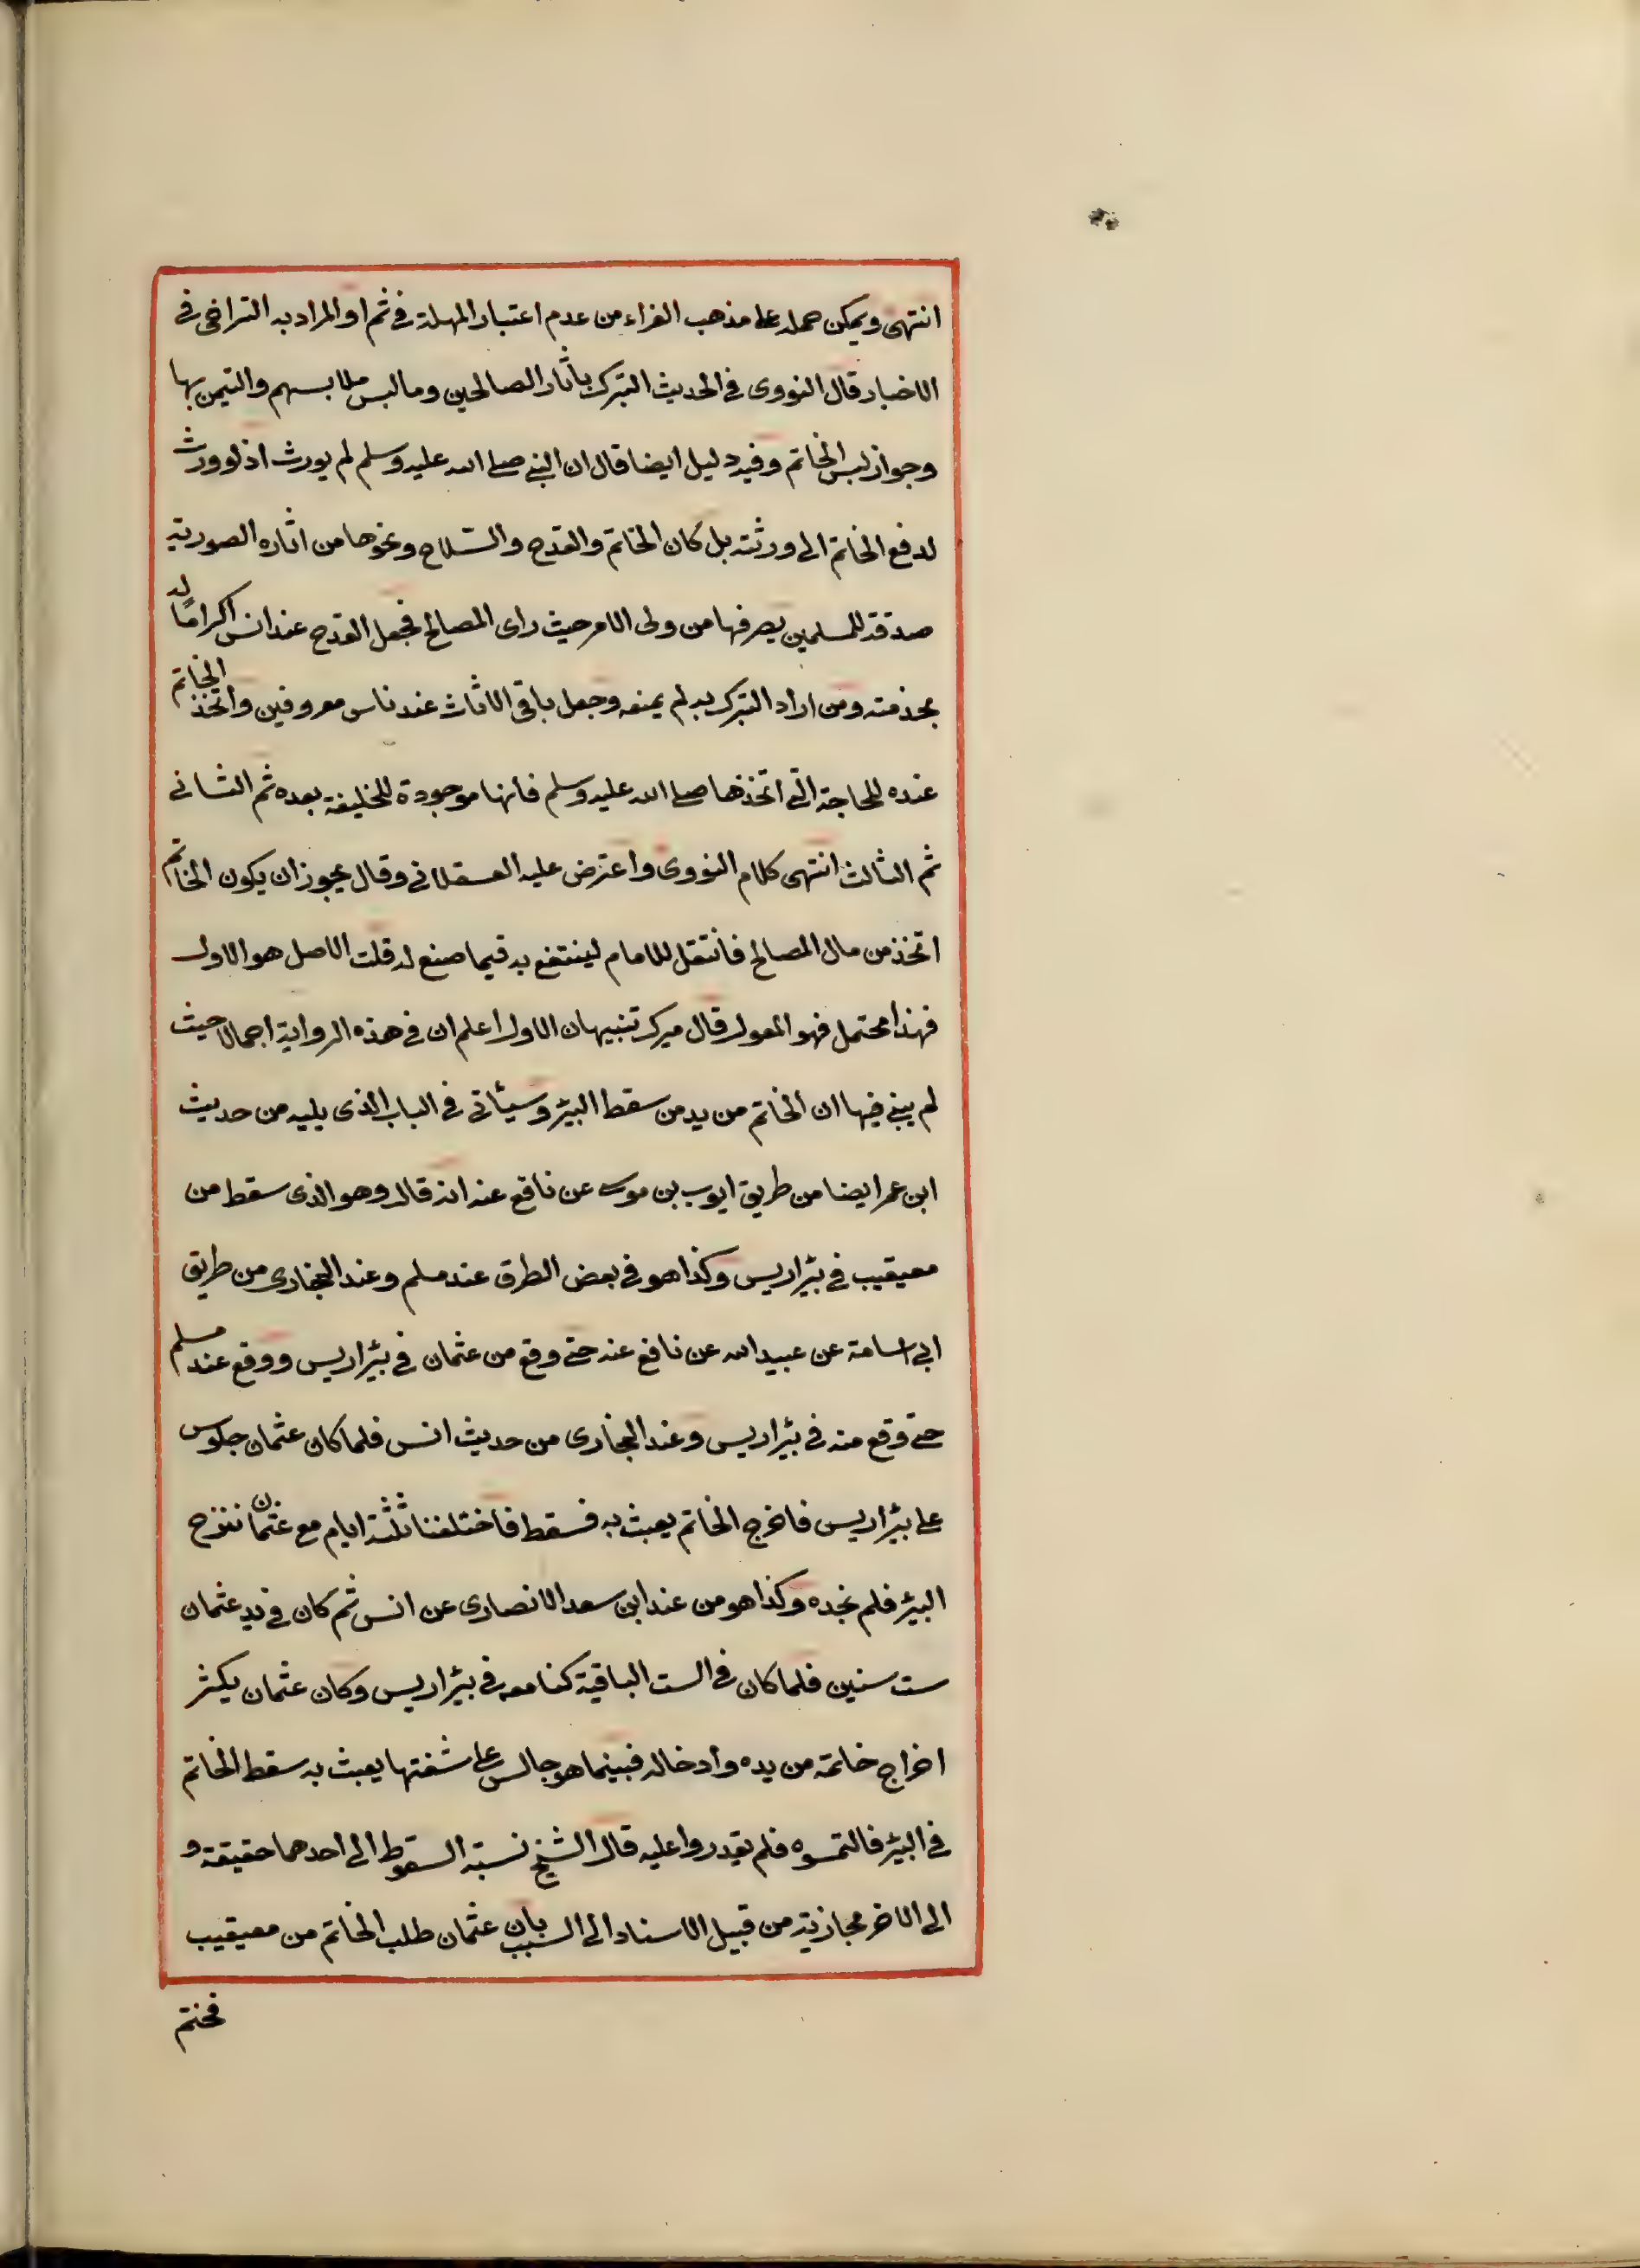 انتهى ويمكن حمله على مذهب الفراء من عدم اعتبار المهلة في ثم او المراد به التراخى في
الاخبار قال النووى في الحديث التبرك بأثار الصالحين وما لبس ملابسهم والتيمن بها
وجواز لبس الخاتم وفيه دليل ايضا قال ان النبي صلى الله عليه وسلم لم يورث اذ لو ورث
لدفع الخاتم الى ورثته بل كان الخاتم والقدح والسّلاح ونحوها من اثاره الصورية
صدقة للمسلمين يصرفها من ولى الامر حيث راى المصالح فجعل القدح عند انس اكرامًا له
بخدمته ومن اراد التبرك به لم يمنعه وجعل باقى الاثاث عند ناس معروفين واتخذ الخاتم
عنده للحاجة الّتي اتخذها صلى الله عليه وسلم فأنها موجودة للخليفة بعده ثم الثانى
ثم الثالث انتهى كلام النووى واعترض عليه العسقلانى وقال يجوز ان يكون الخاتم
اتخذ من مال المصالح فانتقل للامام لينتفع به فيما صنع له قلت الاصل هو الاول
فهذا محتمل فهو المعول قال ميرك تنبيهان الاول اعلم ان في هذه الرواية اجمالا حيث
لم يبنى فيها ان الخاتم من يد من سقط البئر وسيأتى في الباب الذى يليه من حديث
ابن عمر ايضا من طريق ايوب بن موسى عن نافع عنه انه قال وهو الذى سقط من
معيقيب في بئر اريس وكذا هو في بعض الطرق عند مسلم وعند البخارى من طريق
ابى اسامة عن عبيد الله عن نافع عنه حتى وقع من عثمان في بئر اريس ووقع عند مسلم
حتى وقع منه في بئر اريس وعند البخارى من حديث انس فلما كان عثمان جلوس
على بئر اريس فاخرج الخاتم يعبث به فسقط فاختلفنا ثلثة ايام مع عثمان ننزح
البئر فلم نجده وكذا هو من عند ابن سعد الانصارى عن انس ثم كان في يد عثمان
ست سنين فلما كان في الست الباقية كنا معه في بئر اريس وكان عثمان يكثر
اخراج خاتمه من يده وأدخاله فبينما هو جالس على شفتها يعبث به سقط الخاتم
في البئر فالتمسوه فلم يقدروا عليه قال الشيخ نسبة السقوط الى احدهما حقيقة و
الى الاخر مجازية من قبيل الاسناد الى السبب بان عثمان طلب الخاتم من معيقيب
فختم